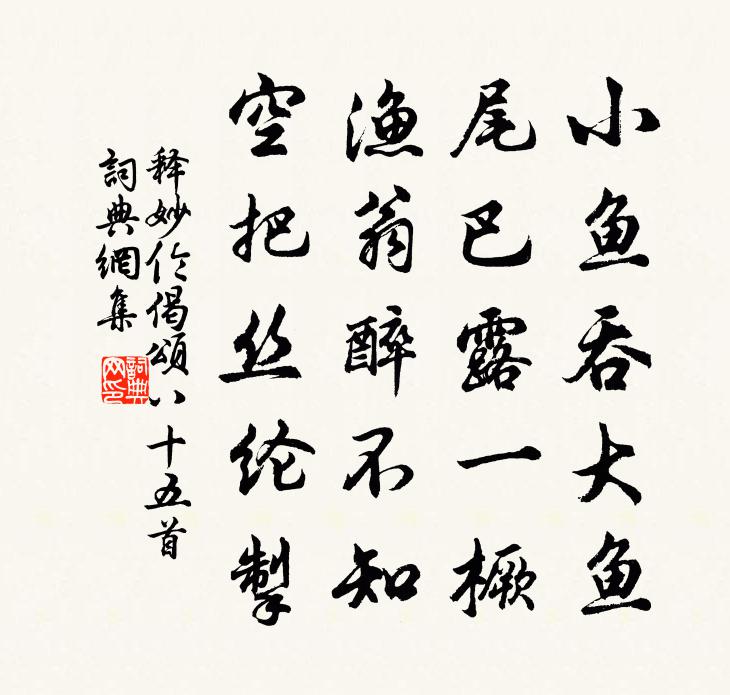 小鱼吞大鱼
尾巴露一橛
渔翁醉不知
空把丝纶掣
释妙伦偈颂八十五首
詞典網集
詞典
网印